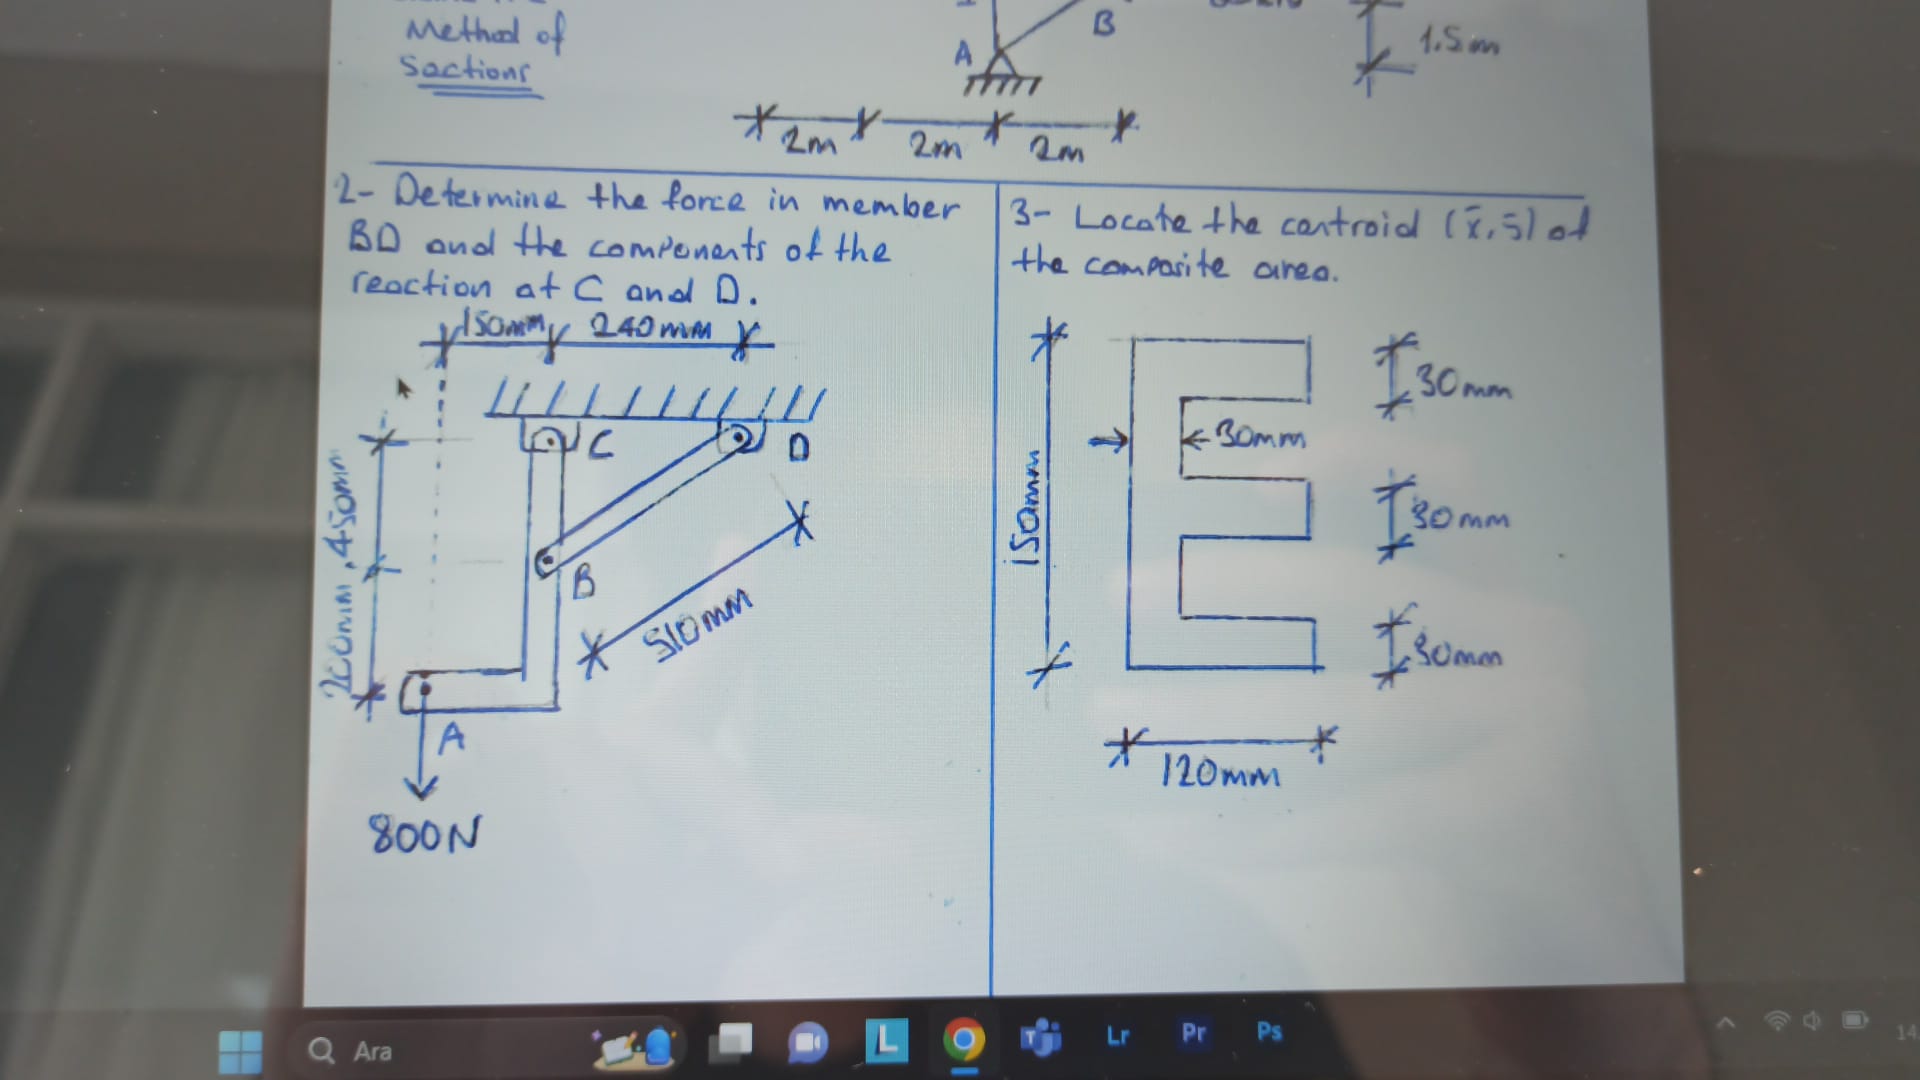 Method of
Sections
A
B
1.5m
2m
2m
2m
2- Determine the force in member
BD and the components of the
reaction at C and D.
150mm
240mm
C
D
200mm
450mm
B
510mm
A
800N
3- Locate the centroid (x̄,ȳ) of
the composite area.
30mm
30mm
150mm
30mm
30mm
120mm
Ara
L
T
Lr
Pr
Ps